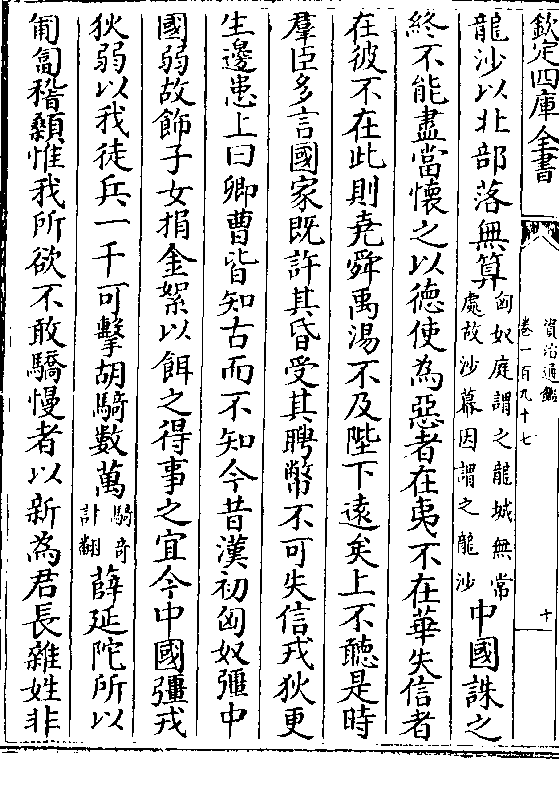 欽定四庫全書
資治通鑑
卷一百九十七
十
龍沙以北部落無算匈奴庭謂之龍城無常處故沙幕因謂之龍沙中國誅之
終不能盡當懷之以德使為惡者在夷不在華失信者
在彼不在此則堯舜禹湯不及陛下遠矣上不聽是時
羣臣多言國家既許其昏受其聘幣不可失信戎狄更
生邊患上曰卿曹皆知古而不知今昔漢初匈奴彊中
國弱故飾子女捐金絮以餌之得事之宜今中國彊戎
狄弱以我徒兵一千可擊胡騎數萬騎奇計翻薛延陀所以
匍匐稽顙惟我所欲不敢驕慢者以新為君長雜姓非